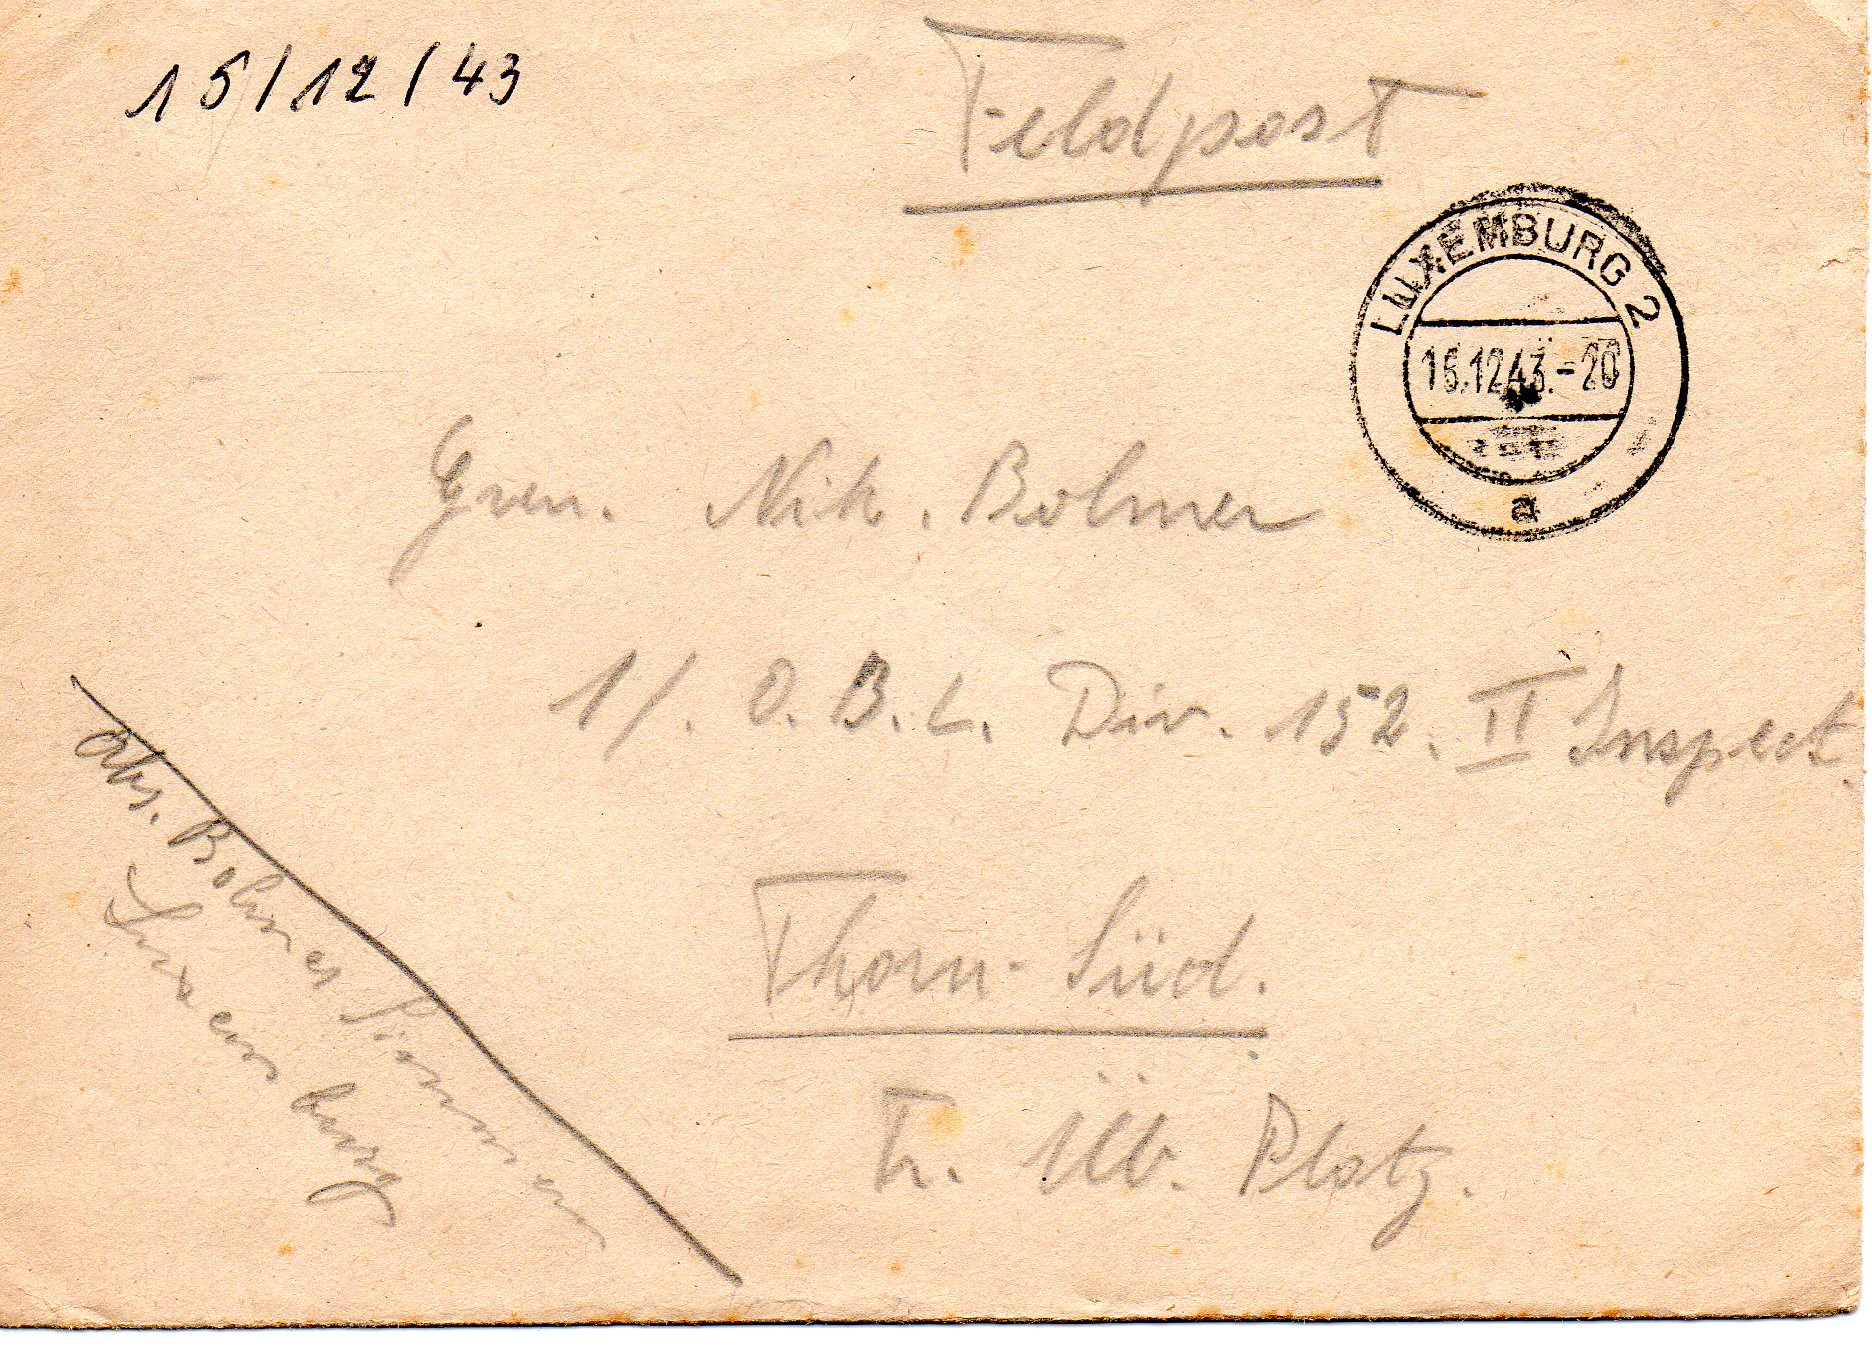 15/12/43
Feldpost
LUXEMBURG 2
15.12.43.-20
a
Gren. Nik. Bolmer
1/. O. B. L. Div. 152. II Inspect.
Thorn-Süd.
Tr. Üb. Platz.
Abs. Bolmer
Luxemburg